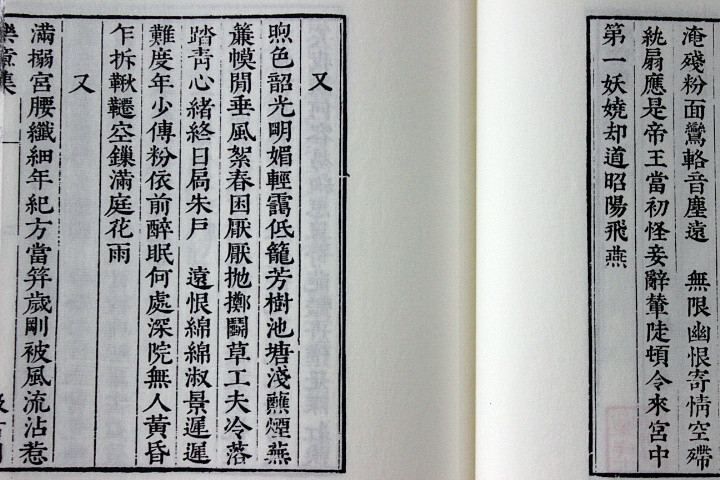 淹殘粉面鸞輅音塵遠　無限幽恨寄情空殢
紈扇應是帝王當初怪妾辭輦陡頓令來宮中
第一妖嬈却道昭陽飛燕
又
煦色韶光明媚輕靄低籠芳樹池塘淺蘸煙蕪
簾幙閒垂風絮春困厭厭抛擲鬬草工夫冷落
踏靑心緒終日扃朱戶　遠恨綿綿淑景遲遲
難度年少傅粉依前醉眠何處深院無人黃昏
乍拆鞦韆空鏁滿庭花雨
又
滿搦宮腰纖細年紀方當笄歲剛被風流沾惹
樂章集　一